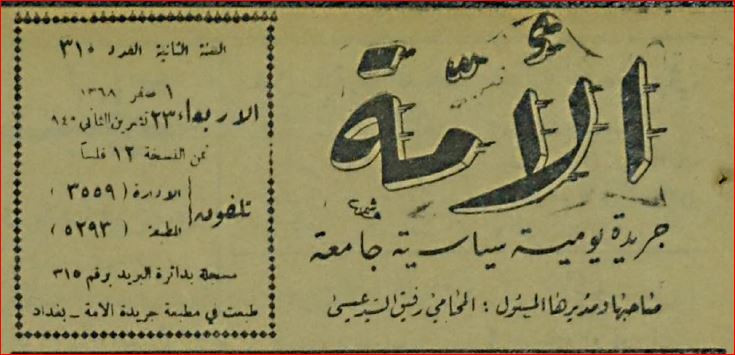 الأمّة
جريدة يومية سياسية جامعة
صاحبها ومديرها المسئول : المحامي رفيق السيد عيسى
السنة الثانية العدد ٣١٠
١ صفر ١٣٦٨
الاربعاء ٢٣ تشرين الثاني
ثمن النسخة ١٢ فلساً
تلفون
الادارة ( ٣٥٥٩ )
المطبعة ( ٥٢٩٣ )
مسجلة بدائرة البريد برقم ٣١٥
طبعت في مطبعة جريدة الامة ـ بغداد